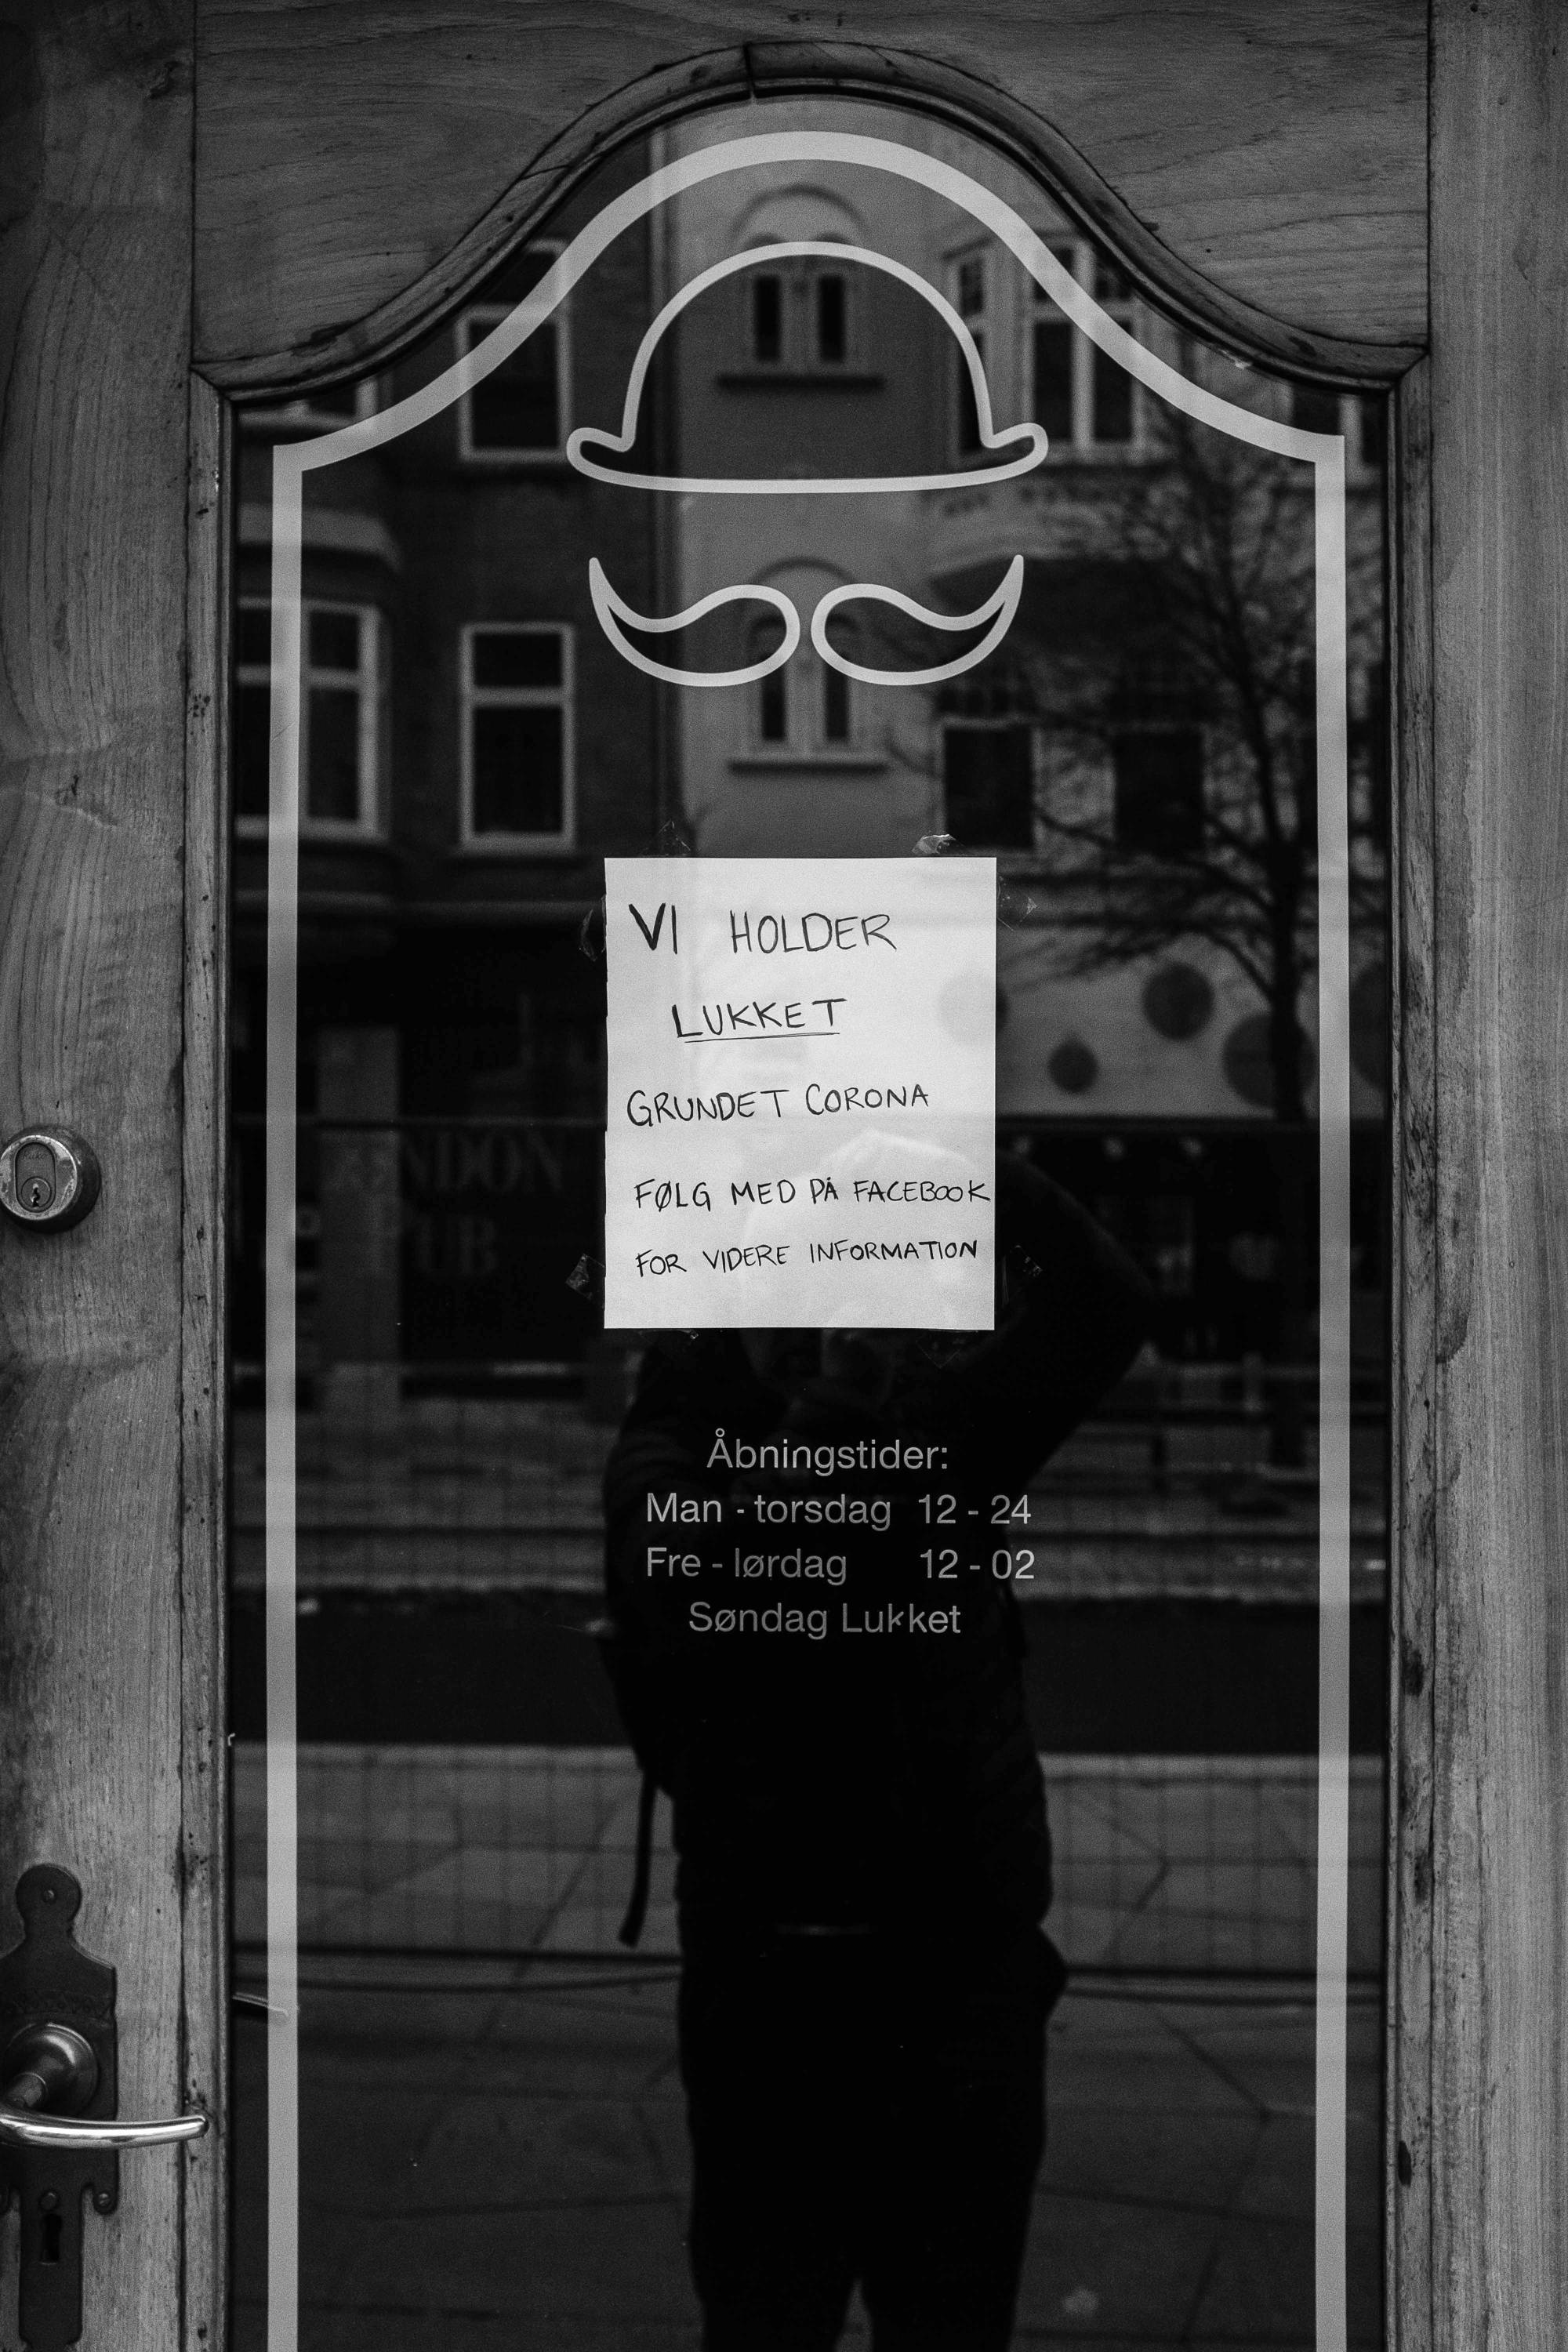 VI HOLDER
LUKKET
GRUNDET CORONA
FØLG MED PÅ FACEBOOK
FOR VIDERE INFORMATION
Åbningstider:
Man - torsdag 12 - 24
Fre - lørdag 12 - 02
Søndag Lukket